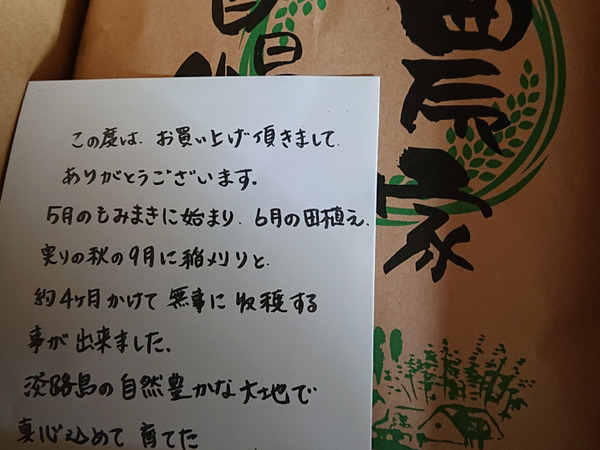 農家
この度は、お買い上げ頂きまして、
ありがとうございます。
5月のもみまきに始まり、6月の田植え、
実りの秋の9月に稲刈りと、
約4ヶ月かけて無事に収穫する
事が出来ました。
淡路島の自然豊かな大地で
真心込めて育てた